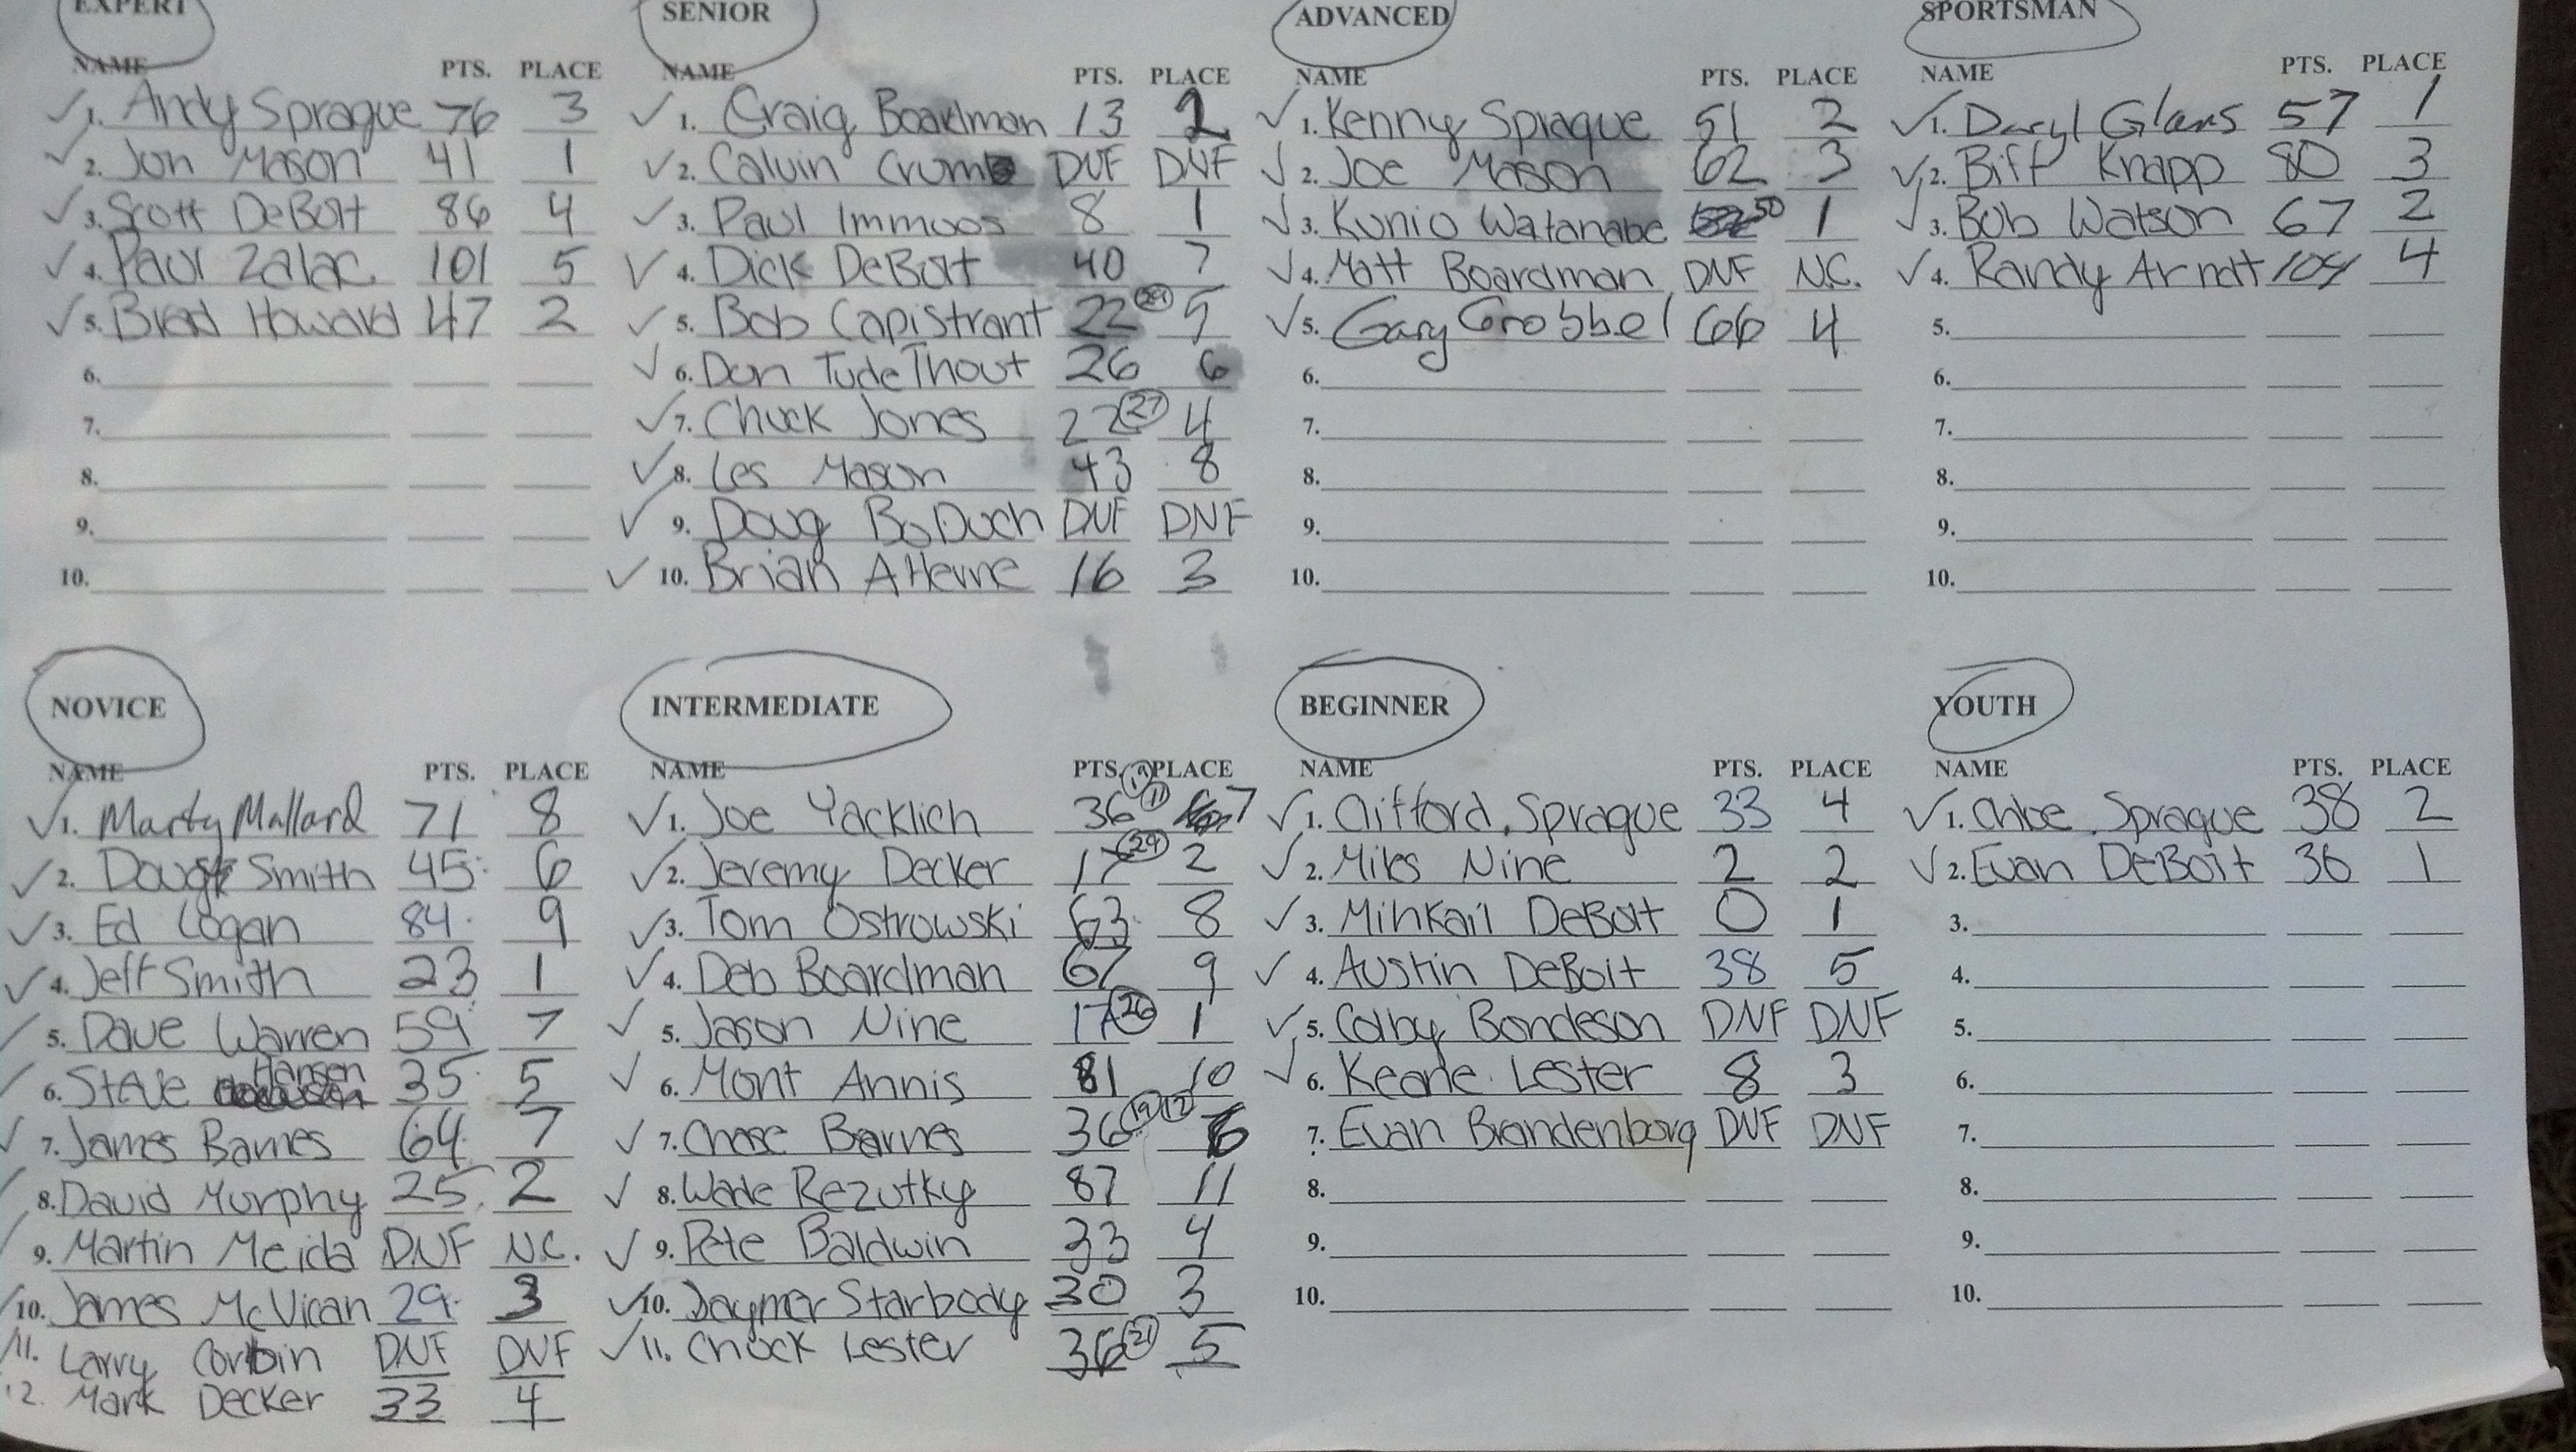 EXPERT
NAME PTS. PLACE
✓ 1. Andy Sprague 76 3
✓ 2. Jon Mason 41 1
✓ 3. Scott DeBolt 86 4
✓ 4. Paul Zalac 101 5
✓ 5. Brad Howard 47 2
6.
7.
8.
9.
10.
SENIOR
NAME PTS. PLACE
✓ 1. Craig Boardman 13 2
✓ 2. Calvin Crumb DNF DNF
✓ 3. Paul Immoos 8 1
✓ 4. Dick DeBolt 40 7
✓ 5. Bob Capistrant 22 5
✓ 6. Don TudeThout 26 6
✓ 7. Chuck Jones 22 (27) 4
✓ 8. Les Mason 43 8
✓ 9. Doug BoDuch DNF DNF
✓ 10. Brian 16 3
ADVANCED
NAME PTS. PLACE
✓ 1. Kenny Sprague 51 2
✓ 2. Joe Mason 62 3
✓ 3. Kunio Watanabe 50 1
✓ 4. Matt Boardman DNF N.C.
✓ 5. Gary Grobbel 66 4
6.
7.
8.
9.
10.
SPORTSMAN
NAME PTS. PLACE
✓ 1. Daryl Glans 57 1
✓ 2. Biff Knapp 80 3
✓ 3. Bob Watson 67 2
✓ 4. Randy Arndt 104 4
5.
6.
7.
8.
9.
10.
NOVICE
NAME PTS. PLACE
✓ 1. Marty Mallard 71 8
✓ 2. Doug Smith 45 6
✓ 3. Ed Logan 84 9
✓ 4. Jeff Smith 23 1
✓ 5. Dave Warren 59 7
✓ 6. Steve Hansen 35 5
✓ 7. James Barnes 64 7
✓ 8. David Murphy 25 2
✓ 9. Martin Meida DNF N.C.
✓ 10. James McVican 29 3
11. Larry Corbin DNF DNF
12. Mark Decker 33 4
INTERMEDIATE
NAME PTS. PLACE
✓ 1. Joe Yacklich 36 (19) (11) 7
✓ 2. Jeremy Decker 17 (24) 2
✓ 3. Tom Ostrowski 63 8
✓ 4. Deb Boardman 67 9
✓ 5. Jason Nine 17 (26) 1
✓ 6. Mont Annis 81 10
✓ 7. Chase Barnes 36 (19) (12) 6
✓ 8. Wade Rezutky 87 11
✓ 9. Pete Baldwin 33 4
✓ 10. Daymer Starbody 30 3
✓ 11. Chuck Lester 36 (21) 5
BEGINNER
NAME PTS. PLACE
✓ 1. Clifford Sprague 33 4
✓ 2. Miles Nine 2 2
✓ 3. Minkail DeBolt 0 1
✓ 4. Austin DeBolt 38 5
✓ 5. Colby Bondeson DNF DNF
✓ 6. Keane Lester 8 3
7. Evan Brandenborg DNF DNF
8.
9.
10.
YOUTH
NAME PTS. PLACE
✓ 1. Chloe Sprague 38 2
✓ 2. Evan DeBolt 36 1
3.
4.
5.
6.
7.
8.
9.
10.